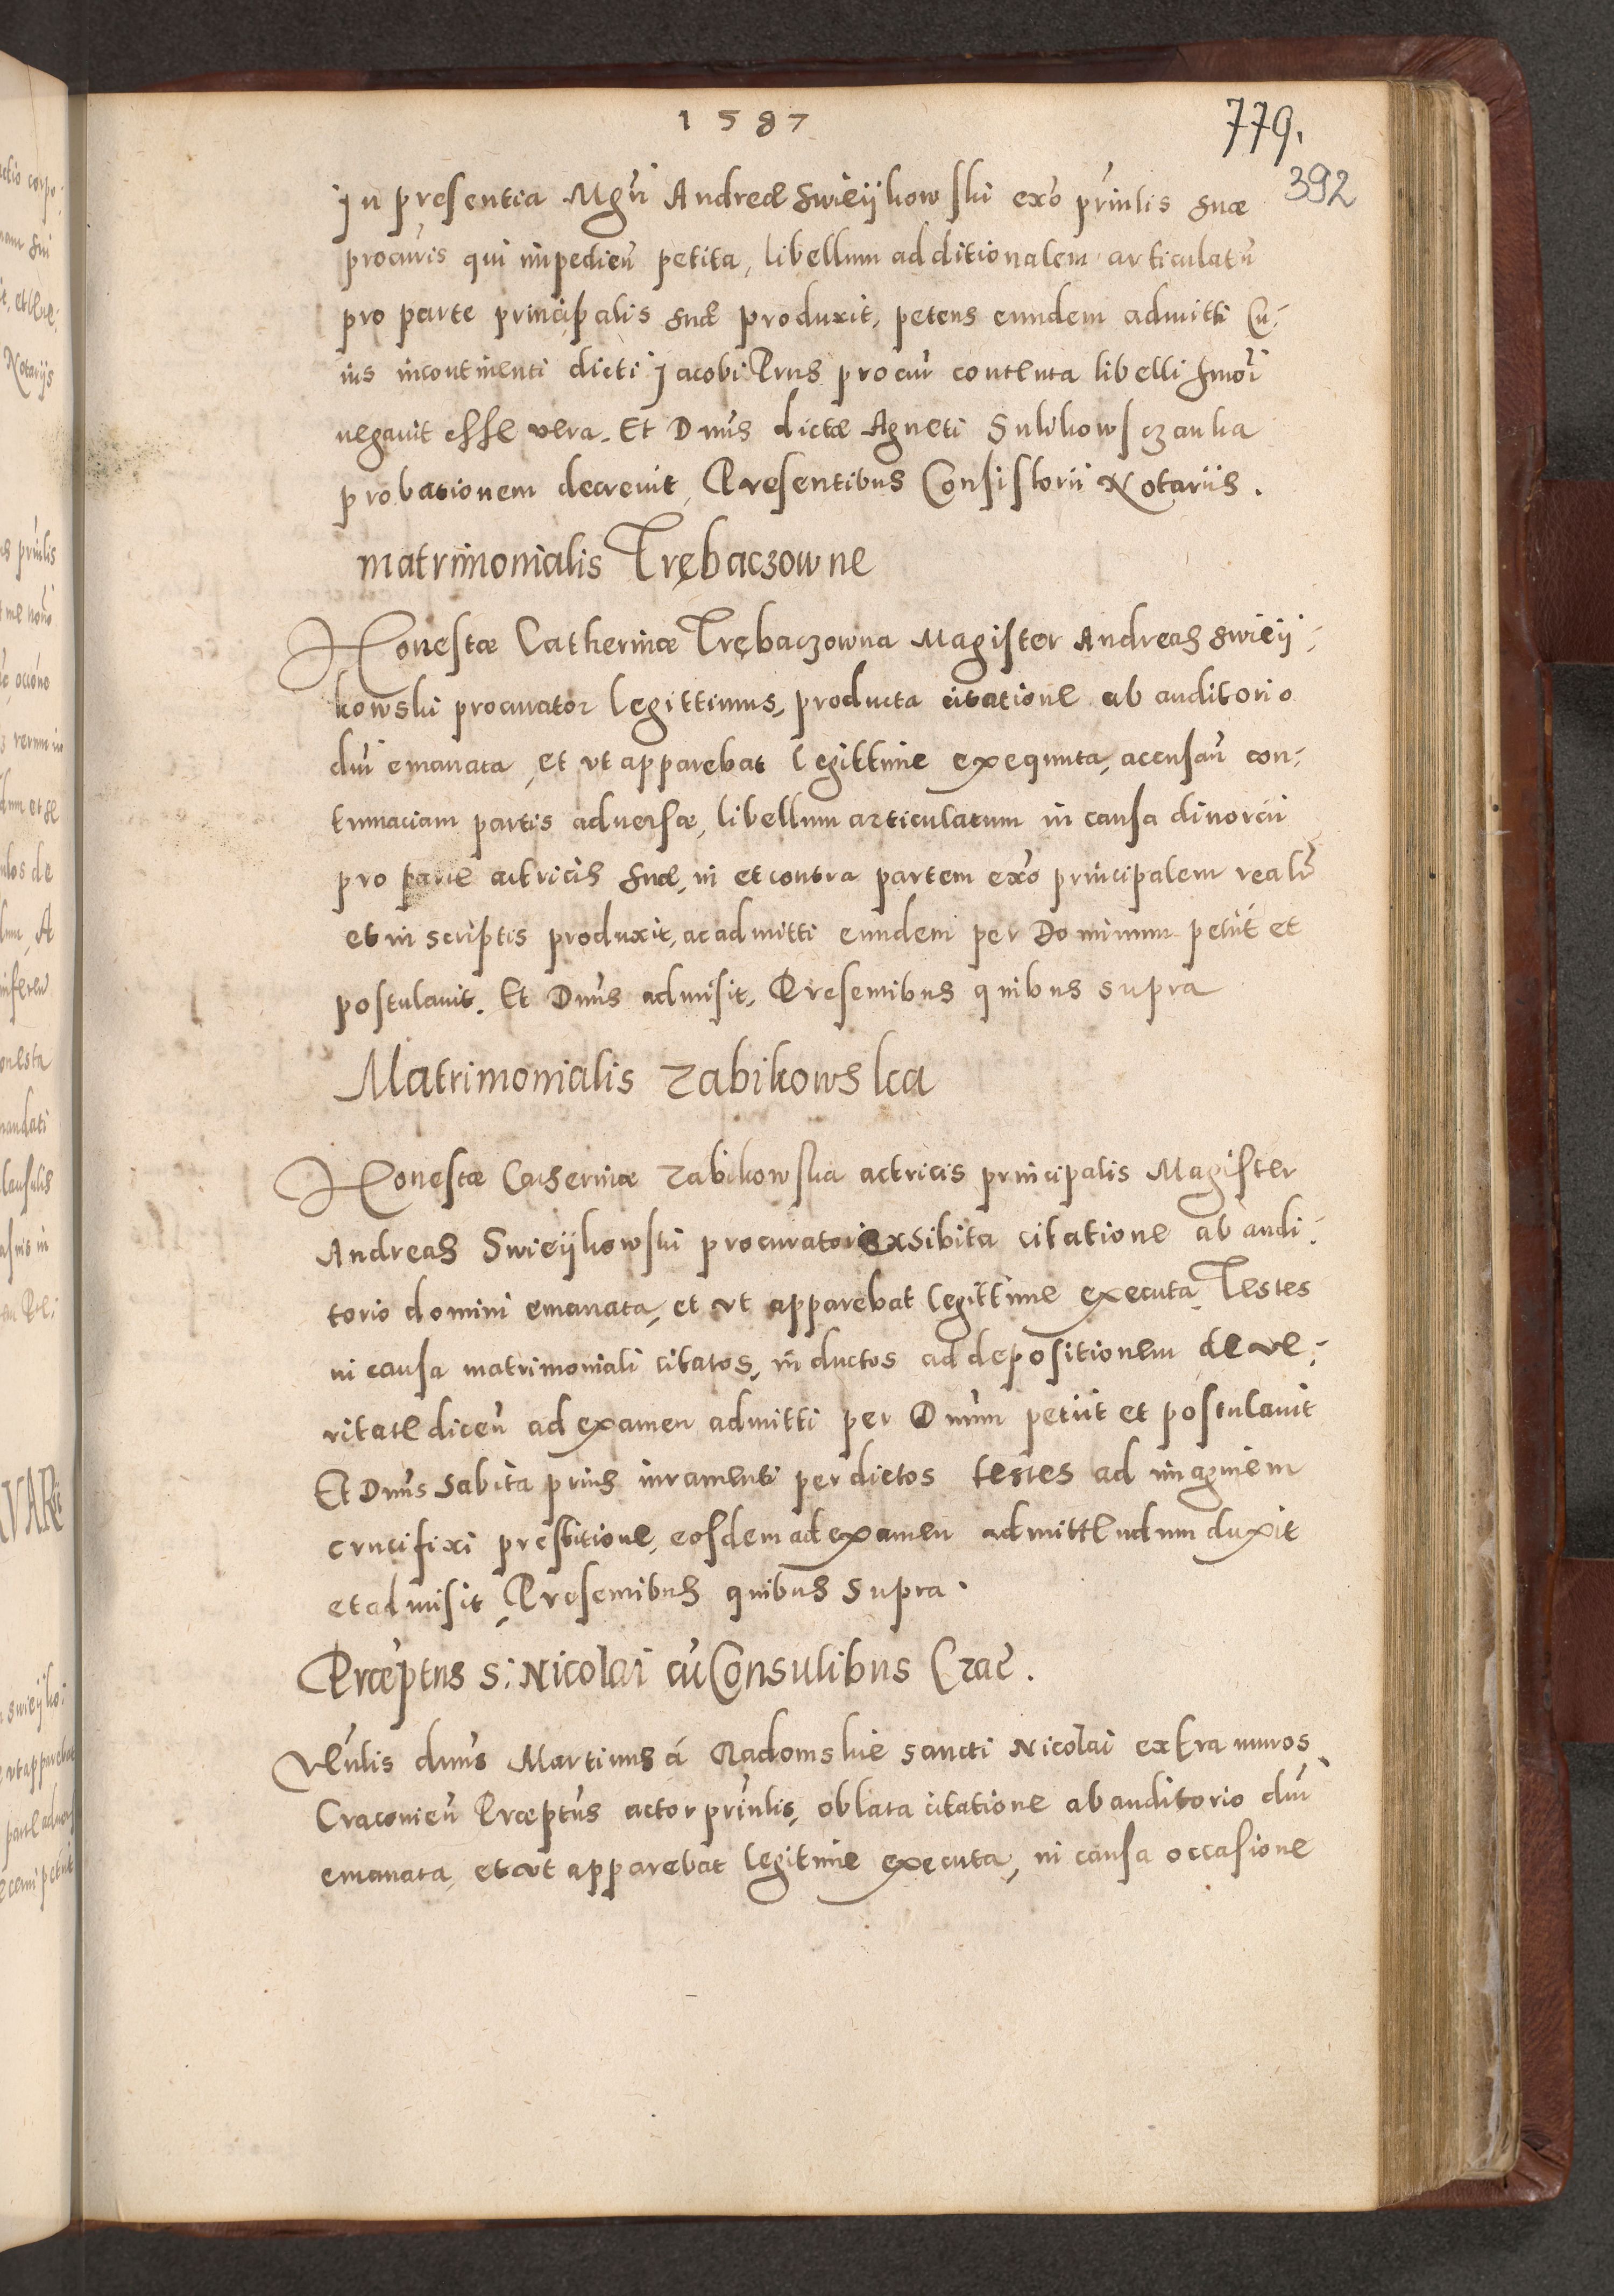 1587
779.
392
In presentia Mgri Andreæ Swieykowski exo prinlis suæ
procuris qui impedien petita, libellum additionalem articulatu
pro parte principalis suæ produxit, petens eundem admitti Cu-
ius incontinenti dicti Jacobi Prus procur contenta libelli smoi
negavit esse vera. Et Dnus dictæ Agneti Sulikowsczanka
probationem decrevit, Presentibus Consistorii Notariis.
matrimonialis Trębaczowne
Honestæ Catherinæ Trębaczowna Magister Andreas Swiey-
kowski procurator legittimus, producta citatione ab auditorio
dni emanata, et ut apparebat legittime exequuta, accusan con-
tumaciam partis adversæ, libellum articulatum in causa divorcii
pro parte actricis suæ, in et contra partem exo principalem realr
et in scriptis produxit, ac admitti eundem per Dominum petiit et
postulavit. Et Dnus admisit, Presentibus quibus supra
Matrimonialis Zabikowska
Honestæ Catherinæ Zabikowska actricis principalis Magister
Andreas Swieykowski procurator exhibita citatione ab audi-
torio domini emanata, et ut apparebat legittime executa, Testes
in causa matrimoniali citatos, inductos ad depositionem de ve-
ritate dicen ad examen admitti per Dnum petiit et postulavit
Et Dnus habita prius iuramenti per dictos testes ad imaginem
crucifixi prestitione, eosdem ad examen admittendum duxit
et admisit, Presentibus quibus supra.
Præptus S: Nicolai cu Consulibus Crac.
Venlis dnus Martinus á Radomskie sancti Nicolai extra muros
Cracovien Præptus actor prinlis, oblata citatione ab auditorio dni
emanata, et ut apparebat legitime executa, in causa occasione